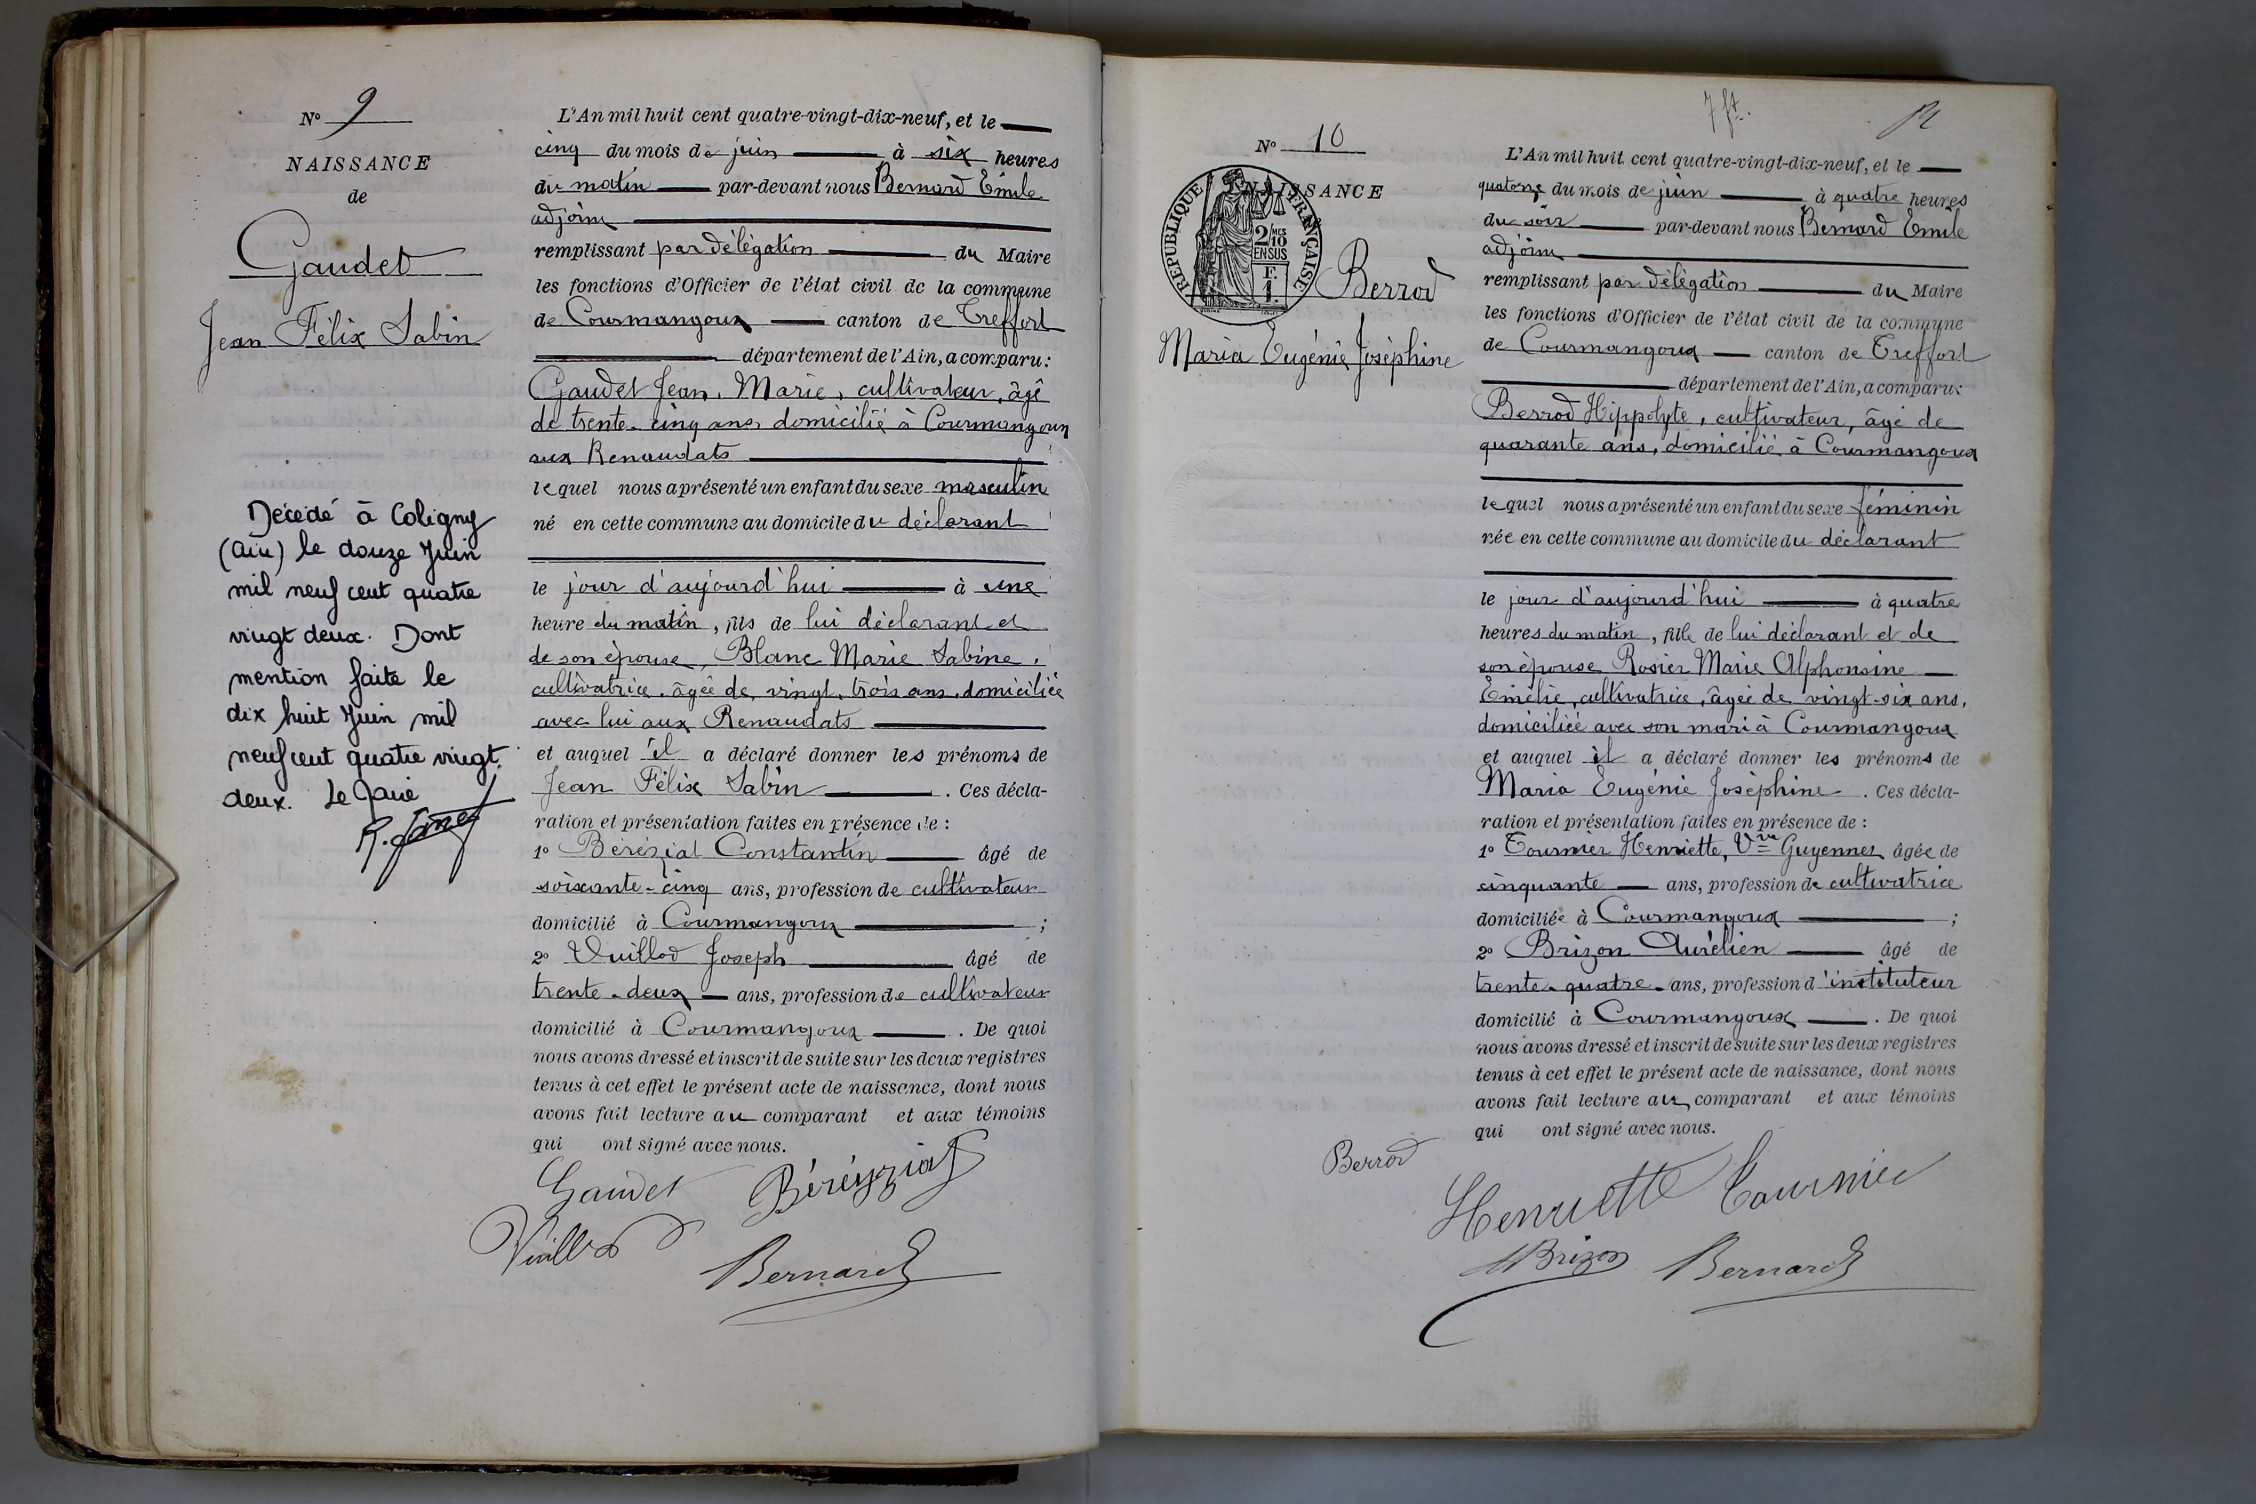 N° 9
NAISSANCE
de
Gaudet
Jean Félix Sabin
Décédé à Coligny
(Ain) le douze Juin
mil neuf cent quatre
vingt deux. Dont
mention faite le
dix huit Juin mil
neuf cent quatre vingt.
deux. Le Maire
L'An mil huit cent quatre-vingt-dix-neuf, et le
cinq du mois de juin à six heures
du matin par-devant nous Bernard Emile
adjoint
remplissant par délégation du Maire
les fonctions d'Officier de l'état civil de la commune
de Courmangoux canton de Treffort
département de l'Ain, a comparu:
Gaudet Jean, Marie, cultivateur, âgé
de trente-cinq ans domicilié à Courmangoux
aux Renaudats
lequel nous a présenté un enfant du sexe masculin
né en cette commune au domicile du déclarant
le jour d'aujourd'hui à une
heure du matin, fils de lui déclarant et
de son épouse, Blanc Marie Sabine,
cultivatrice, âgée de vingt-trois ans, domiciliée
avec lui aux Renaudats
et auquel il a déclaré donner les prénoms de
Jean Félix Sabin . Ces décla-
ration et présentation faites en présence de :
1° Béréziat Constantin âgé de
soixante-cinq ans, profession de cultivateur
domicilié à Courmangoux ;
2° Vuillod Joseph âgé de
trente-deux ans, profession de cultivateur
domicilié à Courmangoux . De quoi
nous avons dressé et inscrit de suite sur les deux registres
tenus à cet effet le présent acte de naissance, dont nous
avons fait lecture au comparant et aux témoins
qui ont signé avec nous.
Gaudet Béréyziat
Vuillod
Bernard
7 ft.
N° 10
NAISSANCE
REPUBLIQUE FRANÇAISE
2/10 MES
EN SUS
F.
1.
Berrod
Maria Eugénie Joséphine
L'An mil huit cent quatre-vingt-dix-neuf, et le
quatorze du mois de juin à quatre heures
du soir par-devant nous Bernard Emile
adjoint
remplissant par délégation du Maire
les fonctions d'Officier de l'état civil de la commune
de Courmangoux canton de Treffort
département de l'Ain, a comparu:
Berrod Hippolyte, cultivateur, âgé de
quarante ans, domicilié à Courmangoux
lequel nous a présenté un enfant du sexe féminin
née en cette commune au domicile du déclarant
le jour d'aujourd'hui à quatre
heures du matin, fille de lui déclarant et de
son épouse Rosier Marie Alphonsine
Emélie, cultivatrice, âgée de vingt-six ans,
domiciliée avec son mari à Courmangoux
et auquel il a déclaré donner les prénoms de
Maria Eugénie Joséphine . Ces décla-
ration et présentation faites en présence de :
1° Tournier Henriette, Vve Guyennet âgée de
cinquante ans, profession de cultivatrice
domiciliée à Courmangoux ;
2° Brizon Aurélien âgé de
trente-quatre ans, profession d'instituteur
domicilié à Courmangoux . De quoi
nous avons dressé et inscrit de suite sur les deux registres
tenus à cet effet le présent acte de naissance, dont nous
avons fait lecture au comparant et aux témoins
qui ont signé avec nous.
Berrod
Henriette Tournier
Brizon Bernard